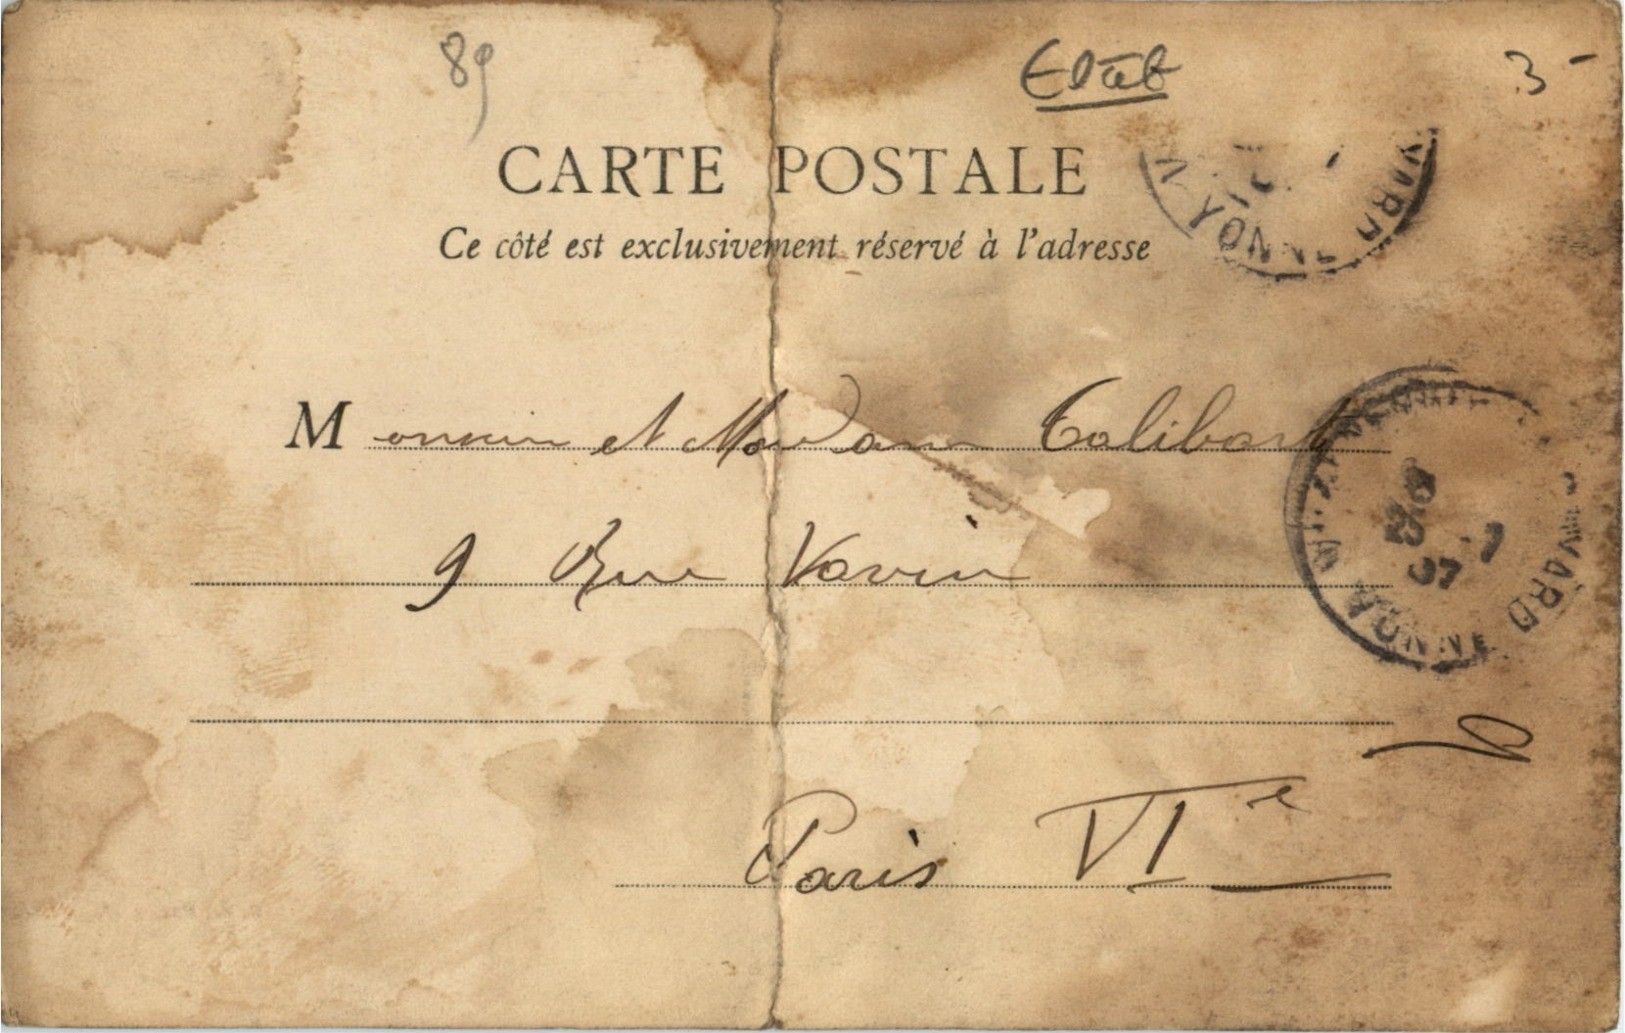 89
Etab
3-
CARTE POSTALE
Ce côté est exclusivement réservé à l'adresse
Monsieur et Madame Talibart
9 Rue Vavin
6
Paris VIe